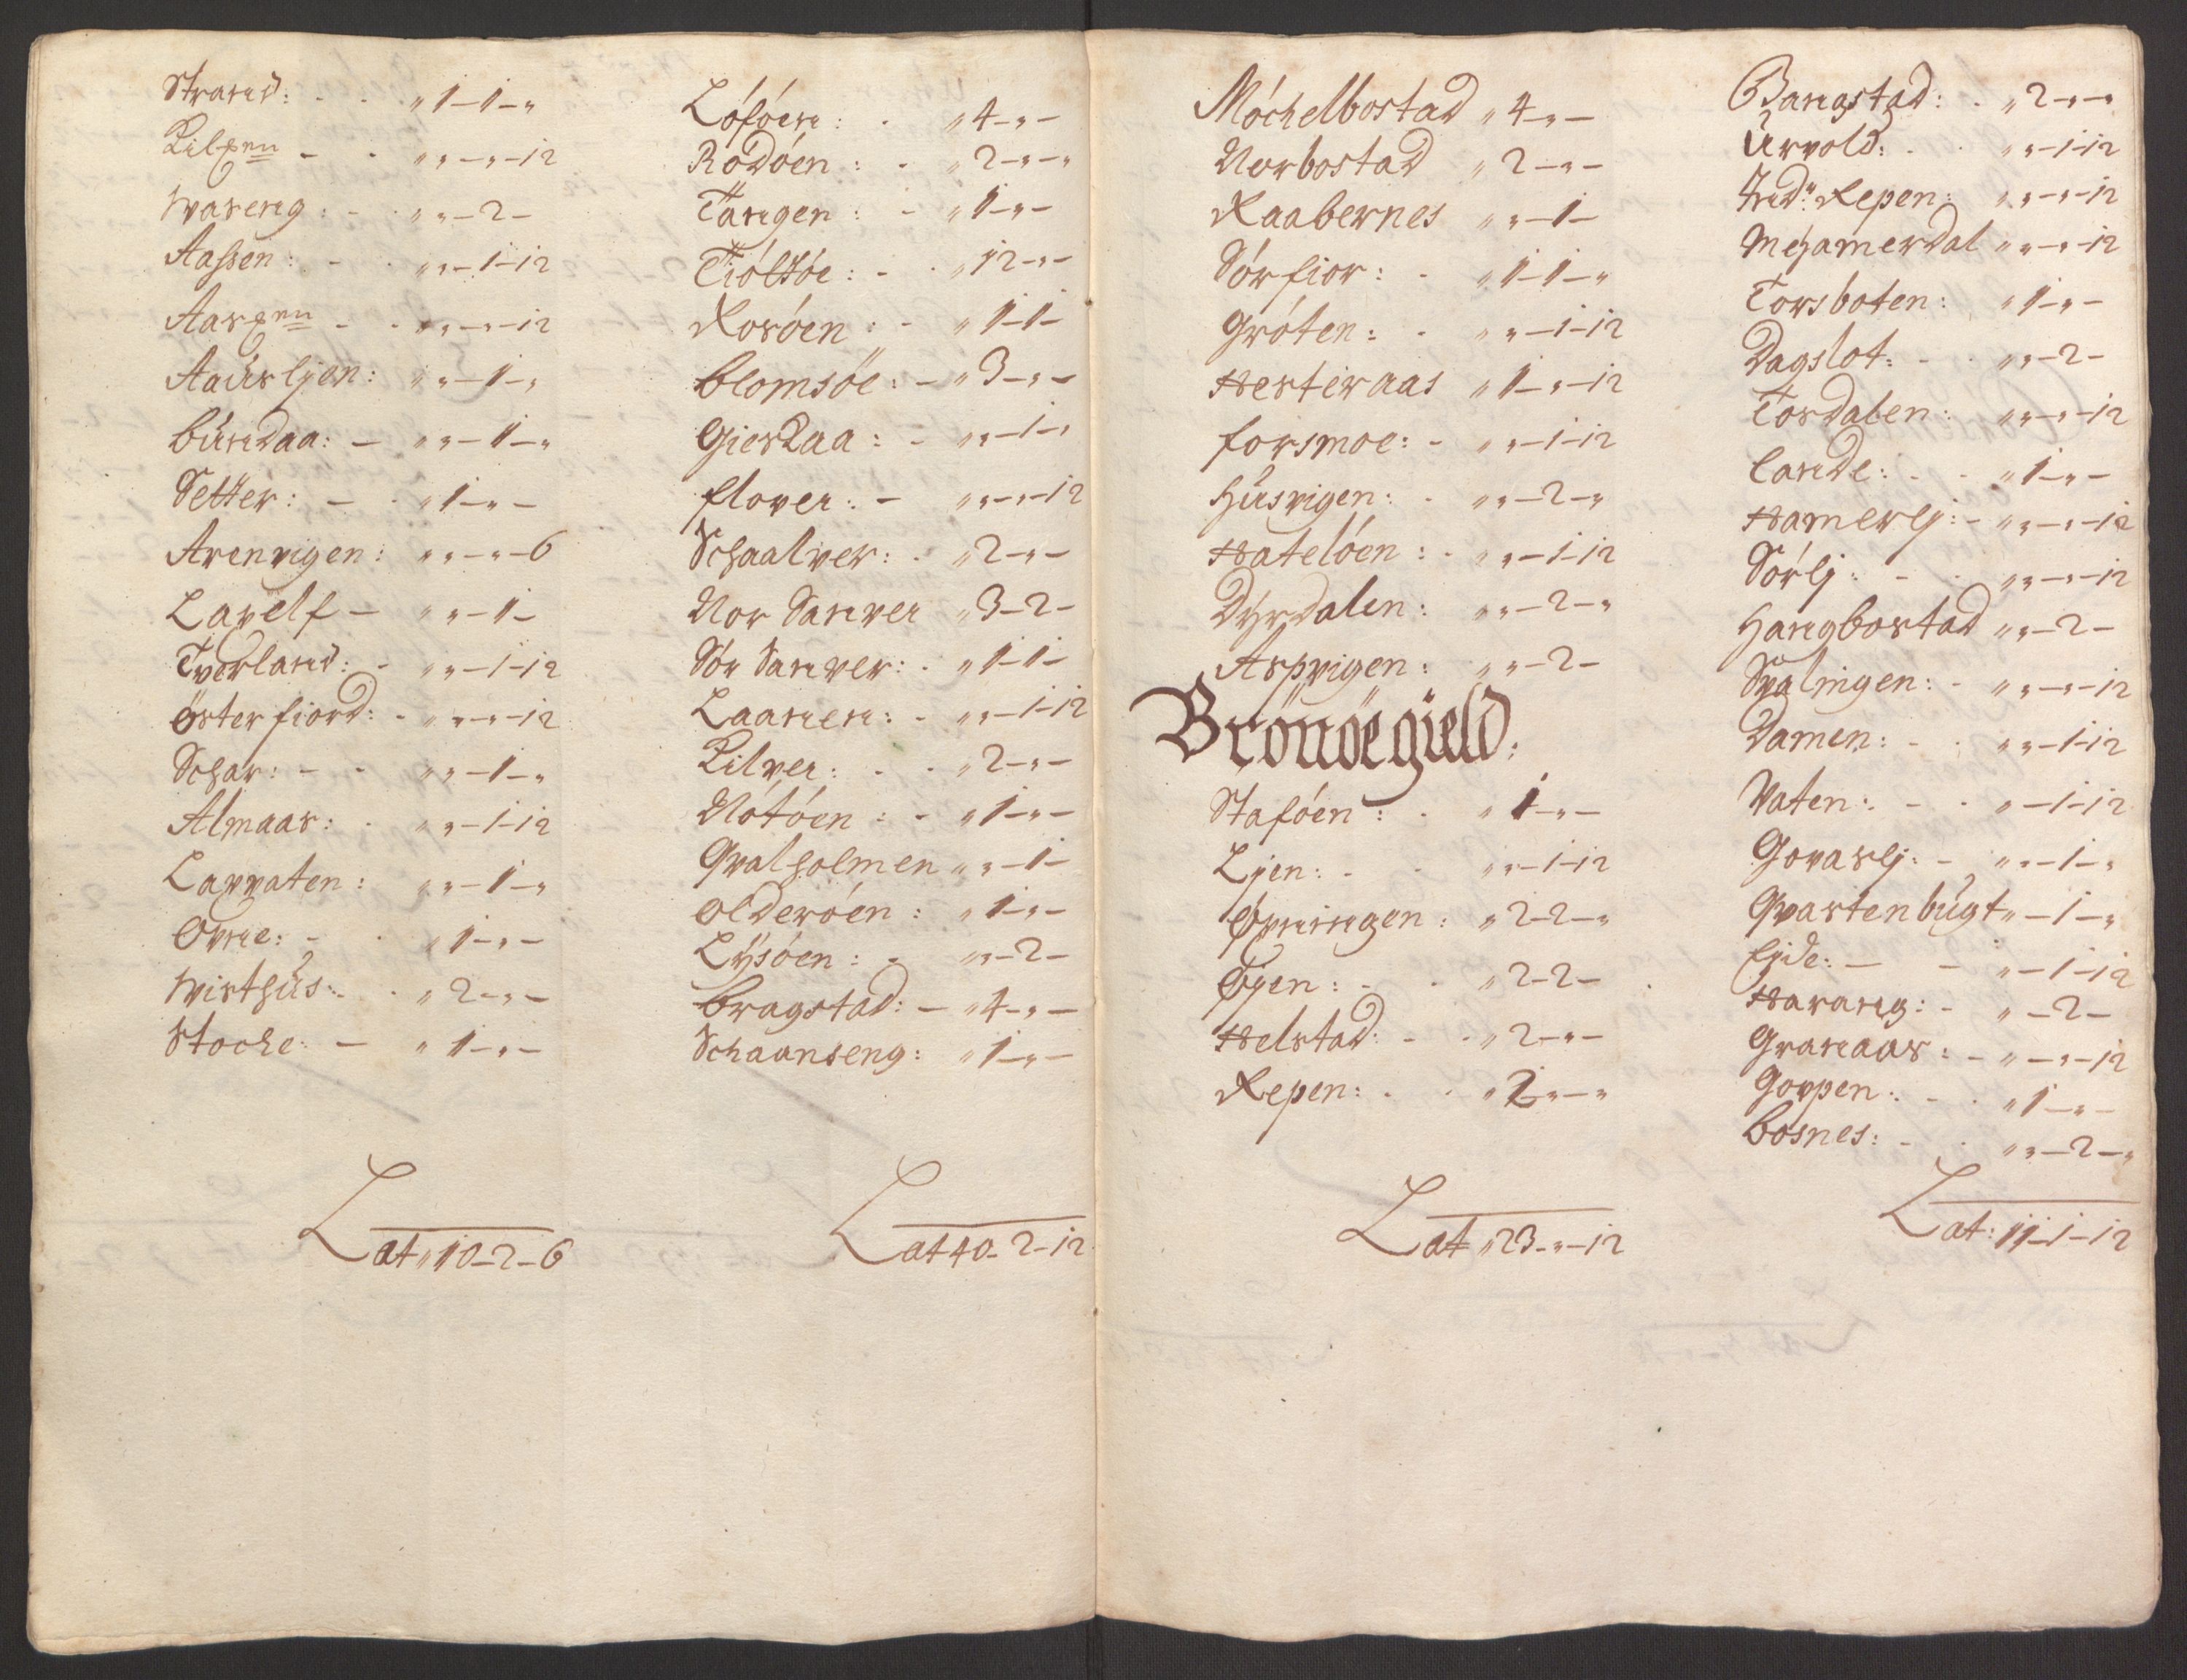 Strand: - - „ 1 - 1 - „
Kilgen - - „ „ - „ - 12
Hvareng: - - „ „ - 2 -
Aassen: - - „ „ - 1 - 12
Aasgen - - „ „ - „ - 12
Aaursljen: „ „ - 1 - „
bundaa: - „ „ - 1 - „
Setter: - - „ 1 - „ -
Arenvigen: „ „ - „ - 6
Lavelf - „ „ - 1 -
Tverland: - „ „ - 1 - 12
Østerfiord: - „ „ - „ - 12
Schar: - - „ „ - 1 - „
Almaas: - „ „ - 1 - 12
Lavvaten: „ „ - 1 - „
Ovne: - - „ 1 - „ -
Histhus: - - „ 2 - „ -
Stocke: - „ 1 - „ -
Lat „ 10 - 2 - 6
Löföen: - „ 4 - „ -
Rödöen: - „ 2 - „ - „
Tangen: - „ 1 - „ -
Tiöttöe: - - „ 12 - „ -
Rosöen: - „ 1 - 1 -
blomsöe: - „ 3 - „ -
Gieskaa: - „ „ - 1 - „
flover: - „ „ - „ - 12
Schaalver: - „ 2 - „ -
Nor Sanver „ 3 - 2 -
Sör Sanver: - „ 1 - 1 -
Laanen: - „ „ - 1 - 12
Kilver: - - „ 2 - „ -
Nötöen: - „ 1 - „ -
Qvalholmen „ „ - 1 -
Olderöen: „ 1 - „ -
Lysöen: - „ „ - 2 -
bragstad: - „ 4 - „ -
Schaanseng: „ 1 - „ -
Lat 40 - 2 - 12
Möchelbostad „ 4 - „ -
Norbostad „ 2 - „ -
Raabernes „ „ - 1 -
Sörfior: - „ 1 - 1 - „
Gröten: - „ „ - 1 - 12
Hesteraas „ 1 - „ - 12
forsmoe: - „ „ - 1 - 12
Husvigen: - „ „ - 2 - „
Hatelöen: - „ „ - 1 - 12
Dyrdalen: „ „ - 2 - „
Aspvigen: „ „ - 2 -
Brönöegield:
Staföen: - „ 1 - „ -
Ljen: - - „ „ - 1 - 12
Opningen: „ 2 - 2 - „
Tjen: - - „ 2 - 2 -
Helstad: - - „ 2 - „ -
Repen: - - „ 2 - „ - „
Lat „ 23 - „ - 12
Bangstad: - „ 2 - „ -
Urvold: - - „ „ - 1 - 12
Indr Repen: „ „ - „ - 12
Mehamerdal „ „ - „ - 12
Torsboten: „ 1 - „ -
Dagslot: - - „ „ - 2 -
Tosdalen: „ „ - „ - 12
Lande: - - „ 1 - „ -
Hamerlj: - „ „ - „ - 12
Sörlj: - - „ „ - „ - 12
Hangbostad „ „ - 2 -
Svalingen: - „ „ - „ - 12
Damen: - - „ „ - 1 - 12
Vaten: - - „ - 1 - 12
Govaslj: - „ „ - 1 - „
Qvastenbugt „ - 1 - „
Ejde: - - „ - 1 - 12
Harang: - „ - 2 -
Granaas: - „ - „ - 12
Goupen: - - „ 1 - „ -
bosnes: - - „ „ - 2 - „
Lat: 11 - 1 - 12